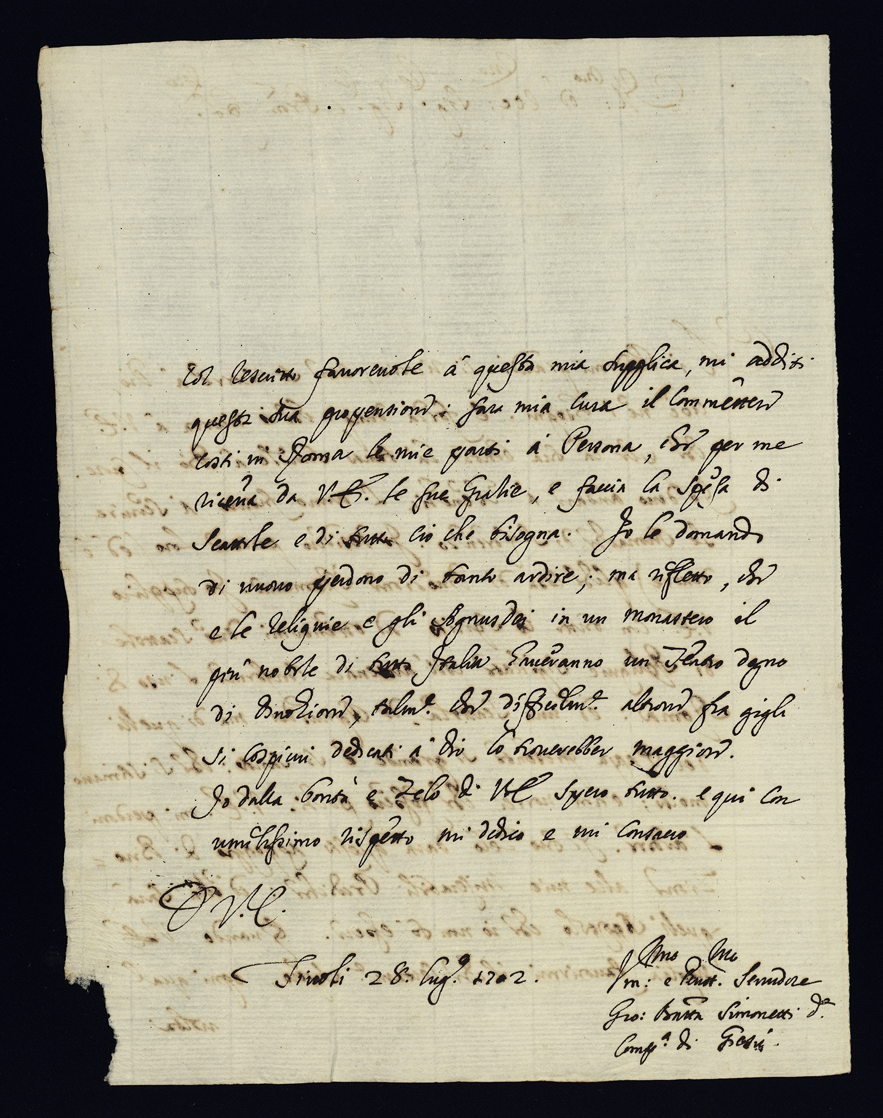 col rescritto favorevole à questa mia supplica, mi additi
questa sua propensione: sara mia cura il commettere
costi in Roma le mie parti à Persona, che per me
riceva da V.E. le sue Gratie, e faccia la spesa di
Scattole e di tutto ciò che bisogna. Io le domando
di nuovo perdono di tanto ardire; ma rifletto, che
e le reliquie e gli Agnusdei in un monastero il
più nobile di tutta Italia haveranno un Teatro degno
di divotione, talm.e che difficilm.e altrove fra gigli
si cospicui dedicati à Dio lo troverebber maggiore.
Io dalla bontà e Zelo di V.E. spero tutto. e qui con
umilissimo rispetto mi dedico e mi consacro
D V.E.
Tivoli 28 lug.o 1702.
Um:mo e Devot.mo Servidore
Gio: Batta Simonetti d.a
Comp.a di Giesù.